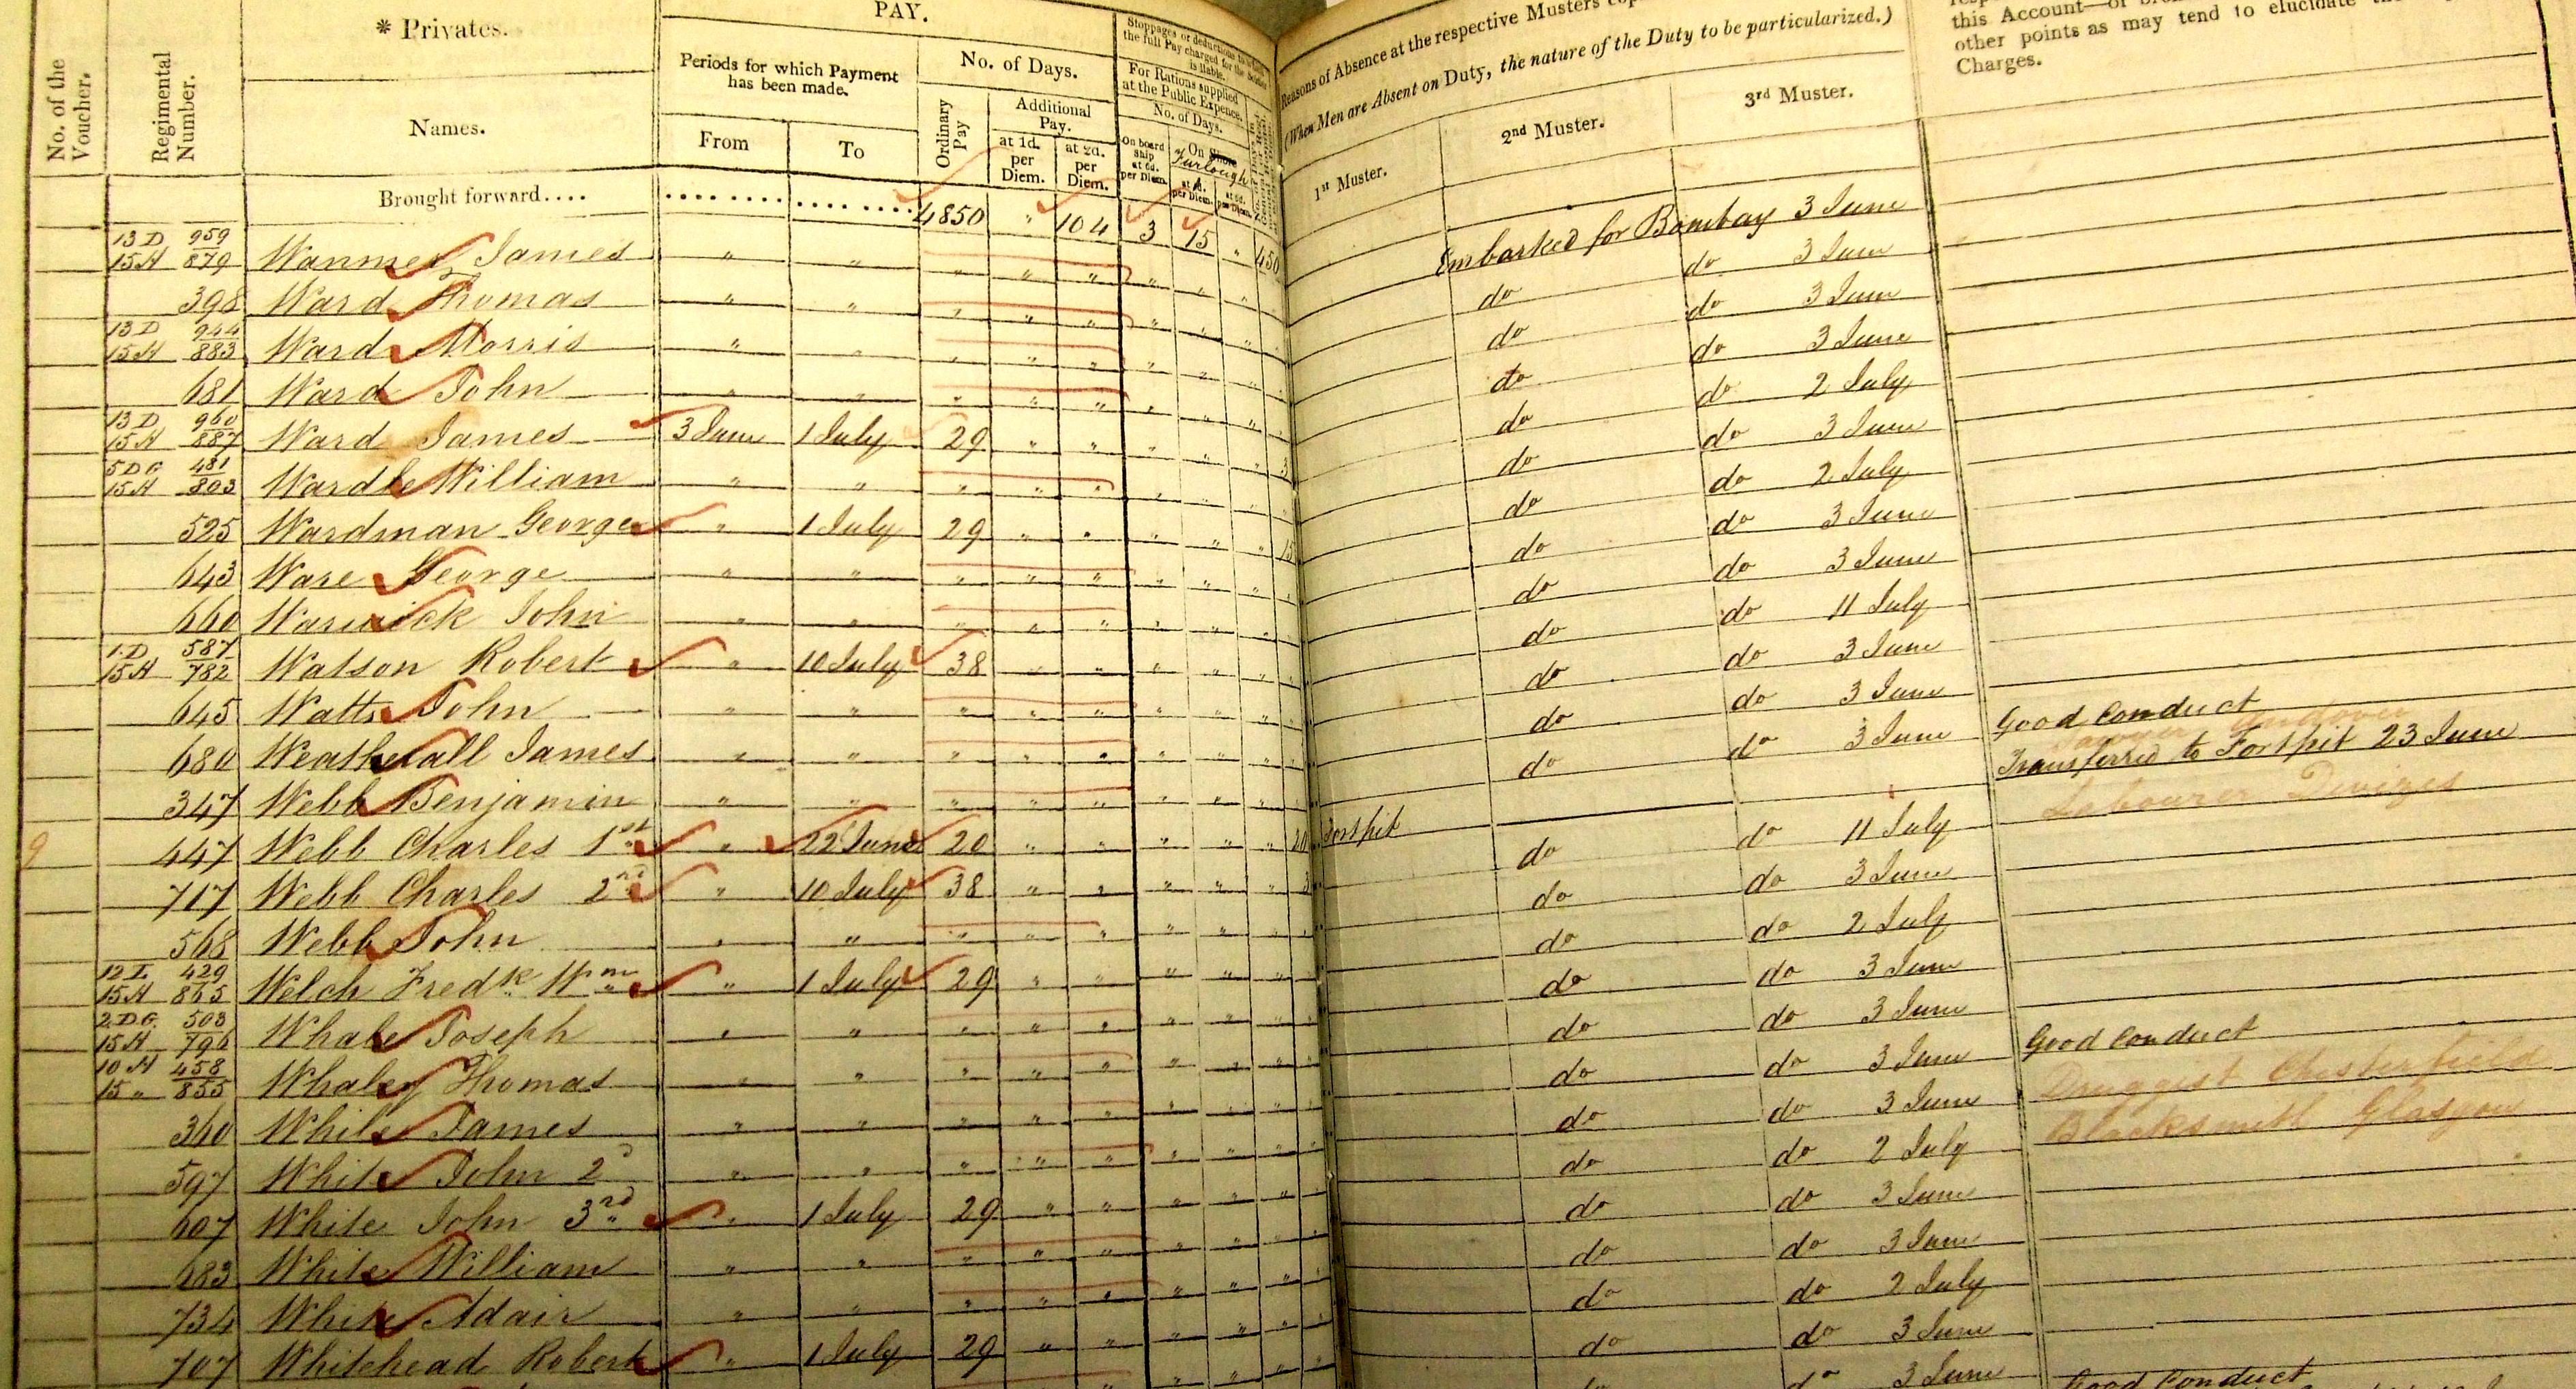 * Privates.
PAY.
No. of the Voucher.
Regimental Number.
Names.
Periods for which Payment has been made.
From
To
No. of Days.
Ordinary Pay
Additional Pay.
at 1d. per Diem.
at 2d. per Diem.
Stoppages or deductions to which the full Pay charged for the Soldier is liable.
For Rations supplied at the Public Expence.
No. of Days.
On board Ship at 6d. per Diem.
On Shore Furlough
Reasons of Absence at the respective Musters
(When Men are Absent on Duty, the nature of the Duty to be particularized.)
1st Muster.
2nd Muster.
3rd Muster.
this Account—or
other points as may tend to elucidate the
Charges.
Brought forward.... 4850 " 104 3 15 " 450
13 D 959 15 H 879 Wanmer James " " " " " " " " Embarked for Bombay 3 June
398 Ward Thomas " " " " " " " " do do 3 June
13 D 944 15 H 883 Ward Morris " " " " " " " " do do 3 June
681 Ward John " " " " " " " " do do 3 June
13 D 960 15 H 887 Ward James 3 June 1 July 29 " " " " " 3 do do 2 July
5 D G 481 15 H 803 Wardle William " " " " " " " " do do 3 June
525 Wardman George " 1 July 29 " " " " " 15 do do 2 July
643 Ware George " " " " " " " " do do 3 June
660 Warwick John " " " " " " " " do do 3 June
1 D 587 15 H 782 Watson Robert " 10 July 38 " " " " " do do 11 July
645 Watts John " " " " " " " " do do 3 June
680 Weatherall James " " " " " " " " do do 3 June
347 Webb Benjamin " " " " " " " " do do 3 June Good Conduct
9 447 Webb Charles 1st " 22 June 20 " " " " " 20 Fortpit Transferred to Fortpit 23 June
Labourer Devizes
717 Webb Charles 2nd " 10 July 38 " " " " " do do 11 July
568 Webb John " " " " " " " " do do 3 June
12 L 429 15 H 865 Welch Fredk Wm " 1 July 29 " " " " " do do 2 July
2 D G 503 15 H 796 Whale Joseph " " " " " " " " do do 3 June
10 H 458 15 " 855 Whaley Thomas " " " " " " " " do do 3 June
360 White James " " " " " " " " do do 3 June Good Conduct
597 White John 2d " " " " " " " " do do 3 June Druggist Chesterfield
607 White John 3rd " 1 July 29 " " " " " do do 2 July Blacksmith Glasgow
683 White William " " " " " " " " do do 3 June
734 White Adair " " " " " " " " do do 3 June
707 Whitehead Robert " 1 July 29 " " " " " do do 2 July
do do 3 June
do 3 June Good Conduct